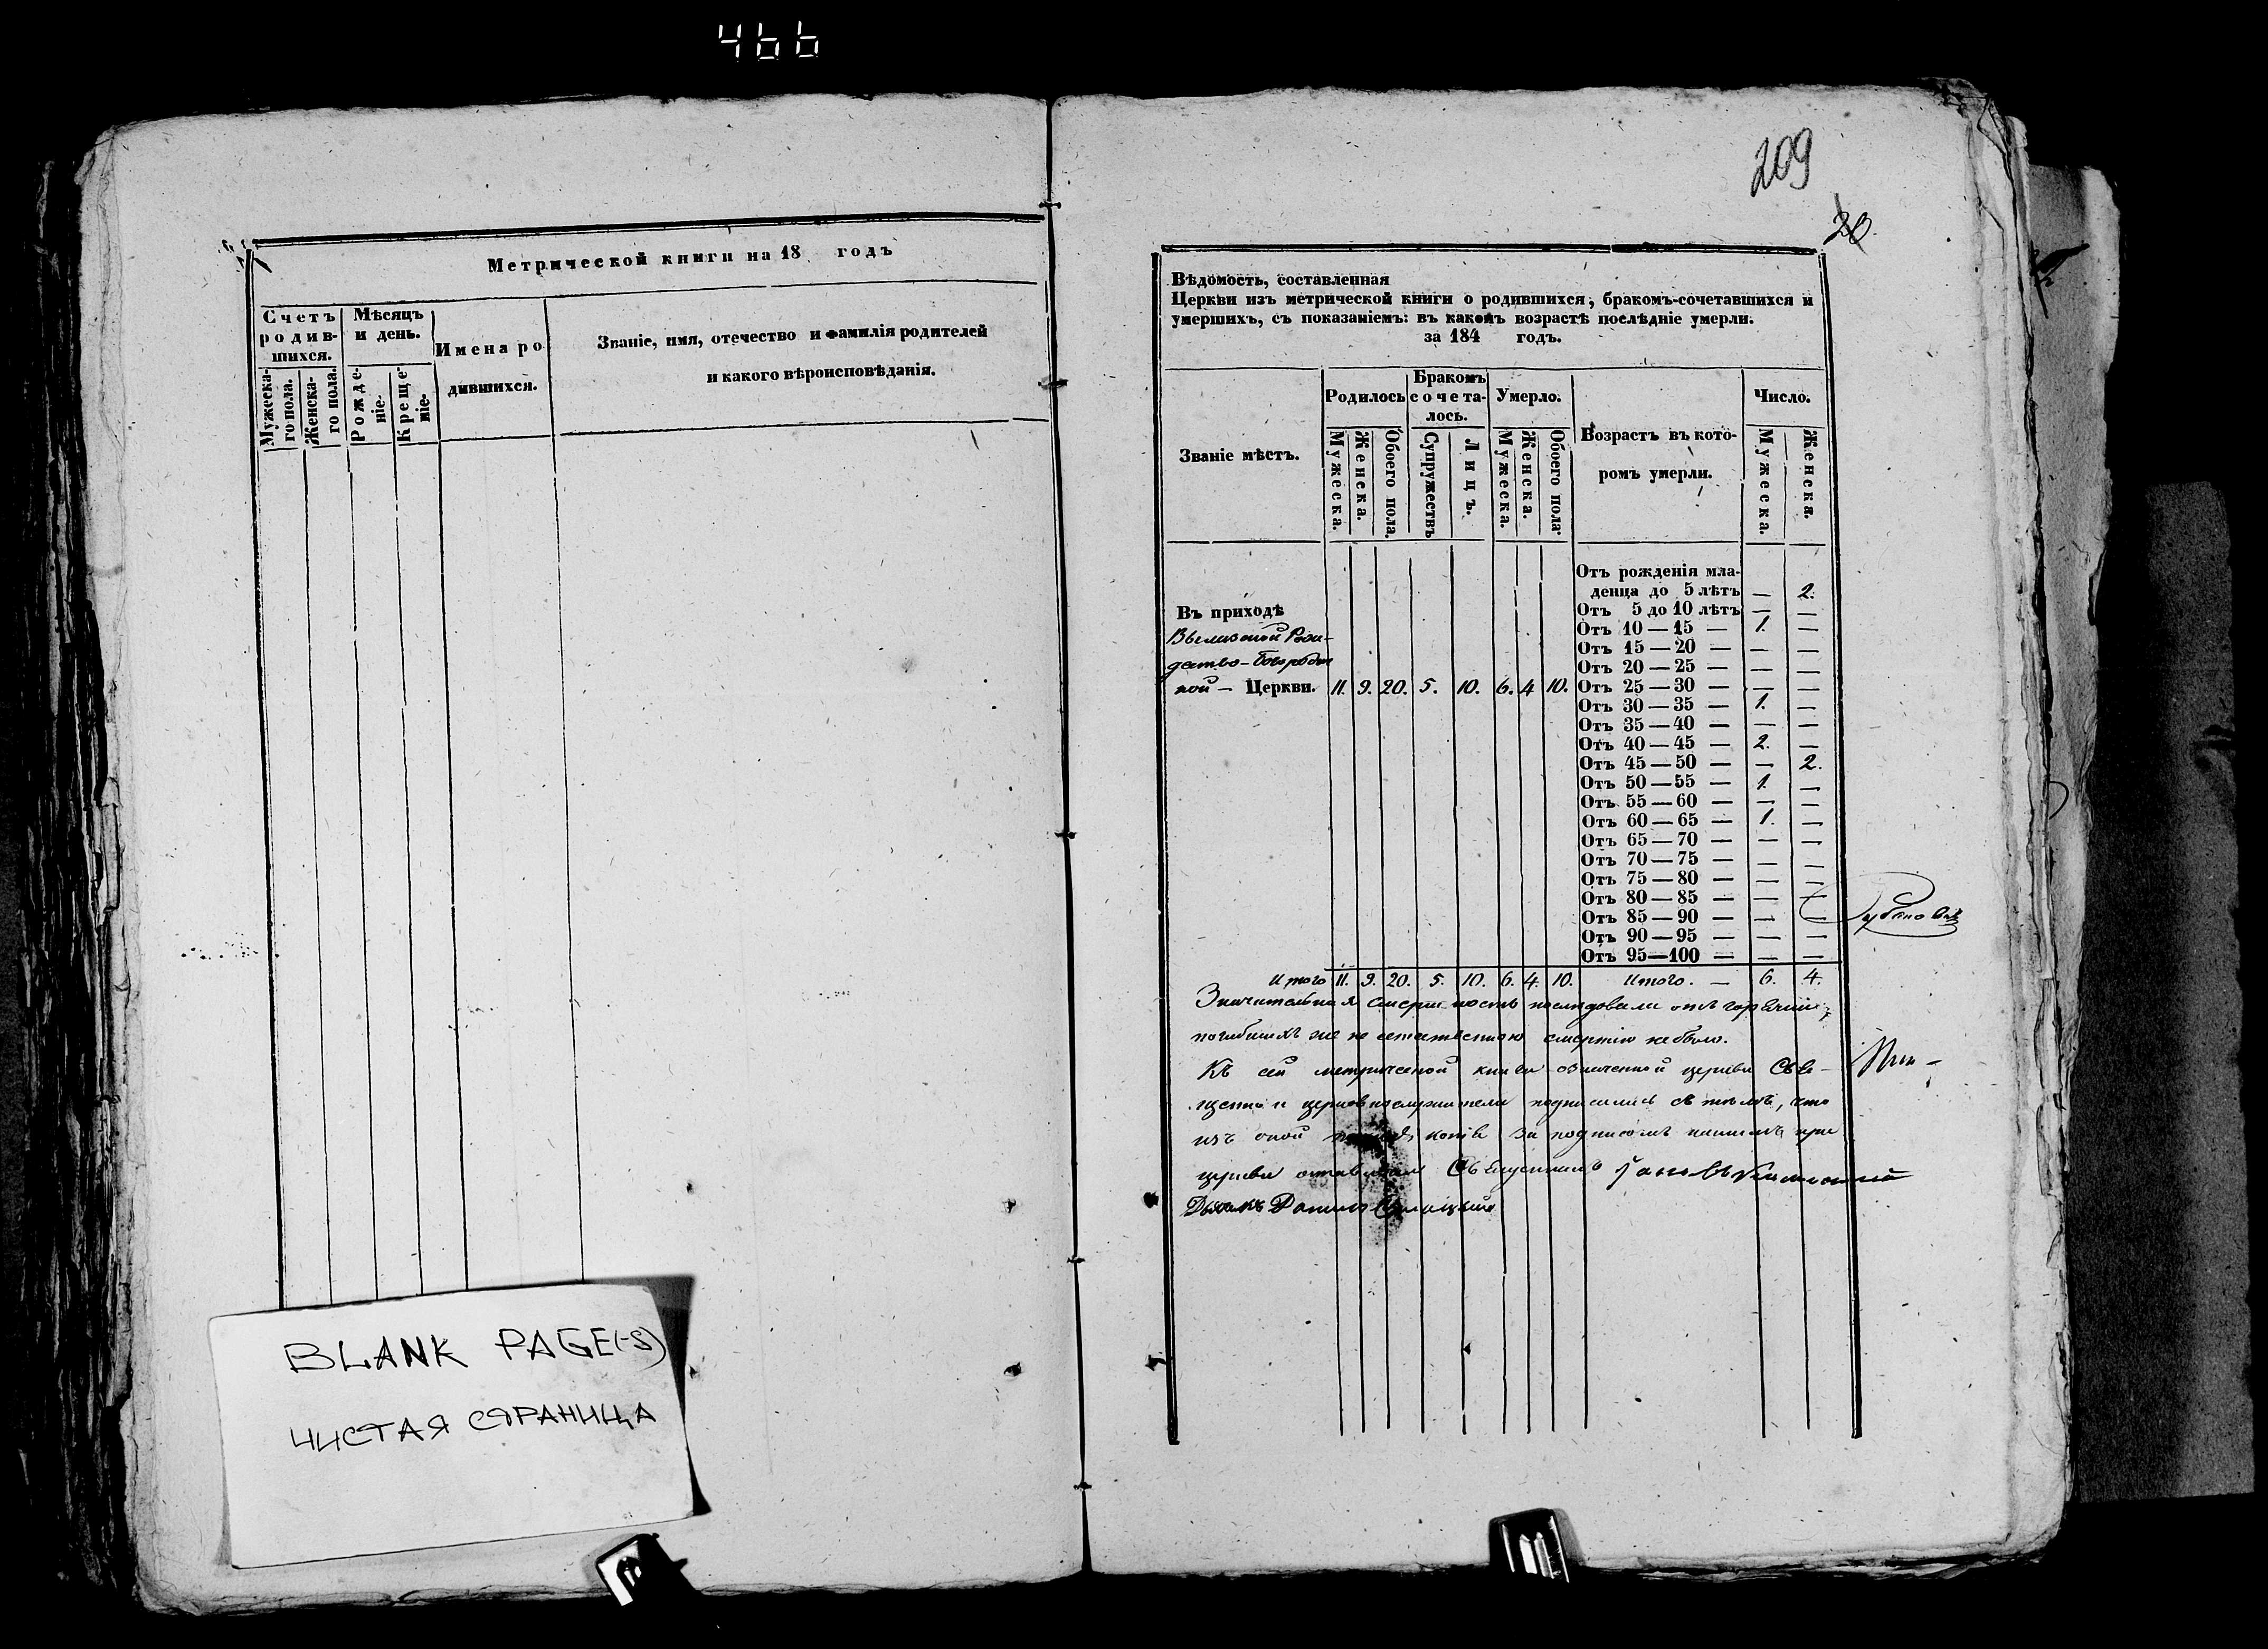 466
Метрической книги на 18 годъ
Счетъ родив-шихся.
Мѣсяцъ и день.
Имена ро
дившихся.
Званіе, имя, отечество и фамилія родителей
и какого вѣроисповѣданія.
Мужеска-го пола.
Женска-го пола.
Рожде-ніе.
Креще-ніе.
BLANK PAGE(-S)
ЧИСТАЯ СТРАНИЦА
209
20
Вѣдомость, составленная
Церкви изъ метрической книги о родившихся, бракомъ-сочетавшихся и
умершихъ, съ показаніемъ: въ какомъ возрастѣ послѣдніе умерли.
за 184 годъ.
Званіе мѣстъ.
Родилось
Бракомъ сочета-лось.
Умерло.
Возрастъ въ кото-
ромъ умерли.
Число.
Мужеска.
Женска.
Обоего пола.
Супружествъ
Лицъ.
Мужеска.
Женска.
Обоего пола.
Мужеска.
Женска.
Отъ рожденія мла-
денца до 5 лѣтъ — 2.
Въ приходѣ
Отъ 5 до 10 лѣтъ — —
Отъ 10 — 15 — 1. —
Отъ 15 — 20 — — —
дество-Богородич
Отъ 20 — 25 — — —
ной — Церкви. 11. 9. 20. 5. 10. 6. 4 10. Отъ 25 — 30 — — —
Отъ 30 — 35 — 1. —
Отъ 35 — 40 — — —
Отъ 40 — 45 — 2. —
Отъ 45 — 50 — — 2.
Отъ 50 — 55 — 1. —
Отъ 55 — 60 — — —
Отъ 60 — 65 — 1. —
Отъ 65 — 70 — — —
Отъ 70 — 75 — — —
Отъ 75 — 80 — — —
Отъ 80 — 85 — — —
Отъ 85 — 90 — — —
Отъ 90 — 95 — — —
Отъ 95—100 — — —
Итого 11. 9. 20. 5. 10. 6. 4. 10. Итого. — 6. 4.
Значительная смертность послѣдовала отъ горячки,
погибшихъ же не естественною смертію не было.
Къ сей метрической книги означенной церкви Свя-
щенно и церковнослужители подписались съ тѣмъ, что
изъ оной копія за подписомъ нашимъ при
церкви оставлена Священникъ
Дьякъ Данило